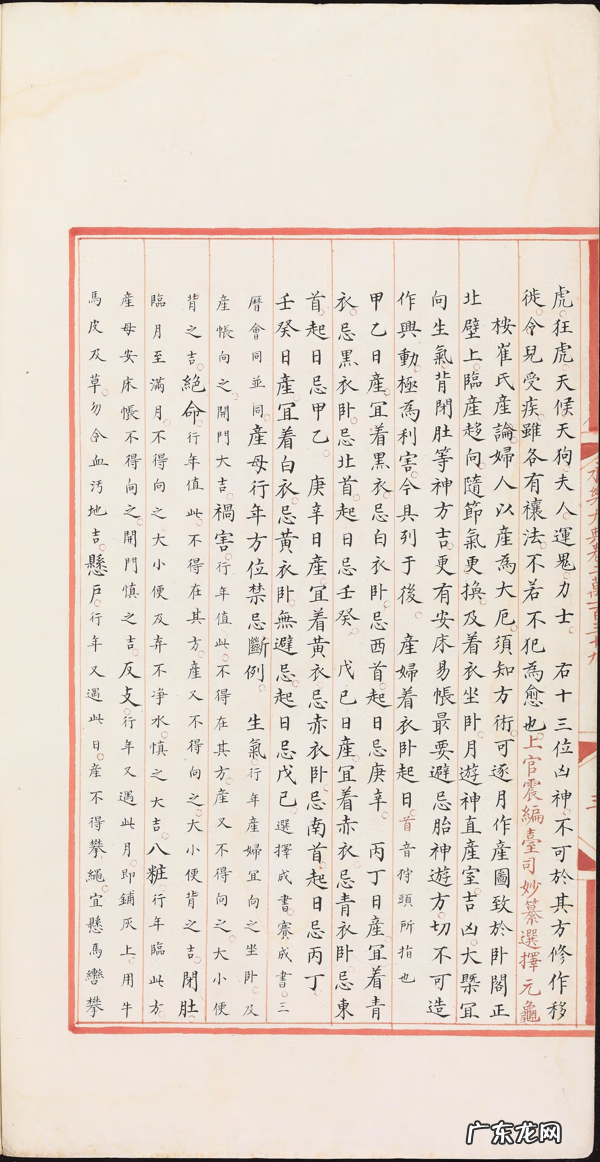 虎。狂虎。天候天狗。夫人運鬼力士。　右十三位凶神。不可於其方修作移
徙。令兒受疾。雖各有禳法。不若不犯為愈也。上官震編臺司妙纂選擇元龜
桉崔氏產論。婦人以產為大厄。須知方術。可逐月作產圖致於卧閣正
北壁上。臨產趍向。隨節氣更換。及着衣坐卧。月遊神直產室。吉凶大槩宜
向生氣。背閉肚等神方吉。更有安床易帳最要避忌胎神遊方。切不可造
作興動。極為利害。今具列于後。　產婦着衣卧起日。首音狩頭所指也
甲乙日產。宜着黑衣。忌白衣卧。忌西首。起日忌庚辛。　丙丁日產。宜着青
衣。忌黑衣卧。忌北首。起日忌壬癸。　戊己日產。宜着赤衣。忌青衣卧。忌東
首。起日忌甲乙。　庚辛日產。宜着黃衣。忌赤衣卧。忌南首。起日忌丙丁
壬癸日產。宜着白衣。忌黃衣卧。無避忌。起日忌戊己。選擇成書。賽成書。三
曆會同並同。產母行年方位禁忌斷例。　生氣。行年產婦宜向之坐卧。及
產帳向之。開門大吉。禍害。行年值此。不得在其方。產又不得向之。大小便
背之吉。絕命。行年值此。不得在其方。產又不得向之。大小便背之吉。閉肚。
臨月至滿月。不得向之大小便及弃不净水。慎之大吉。八粧。行年臨此方。
產母安床帳不得向之。開門慎之吉。反支。行年又遇此月。即鋪灰上。用牛
馬皮及草。勿令血汚地吉。懸尸。行年又遇此日。產不得攀繩。宜懸馬轡攀
三
广东龙网